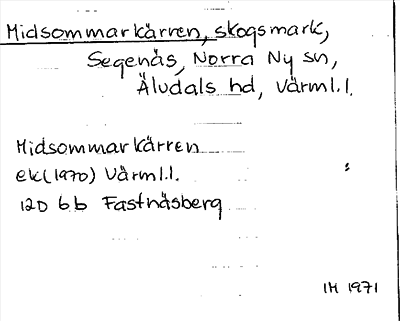 Midsommarkärren, skogsmark,
Segenäs, Norra Ny sn,
Äludals hd, Värml.l.
Midsommarkärren
ek (1970) Värml.l.
12D 6b Fastnäsberg
IH 1971